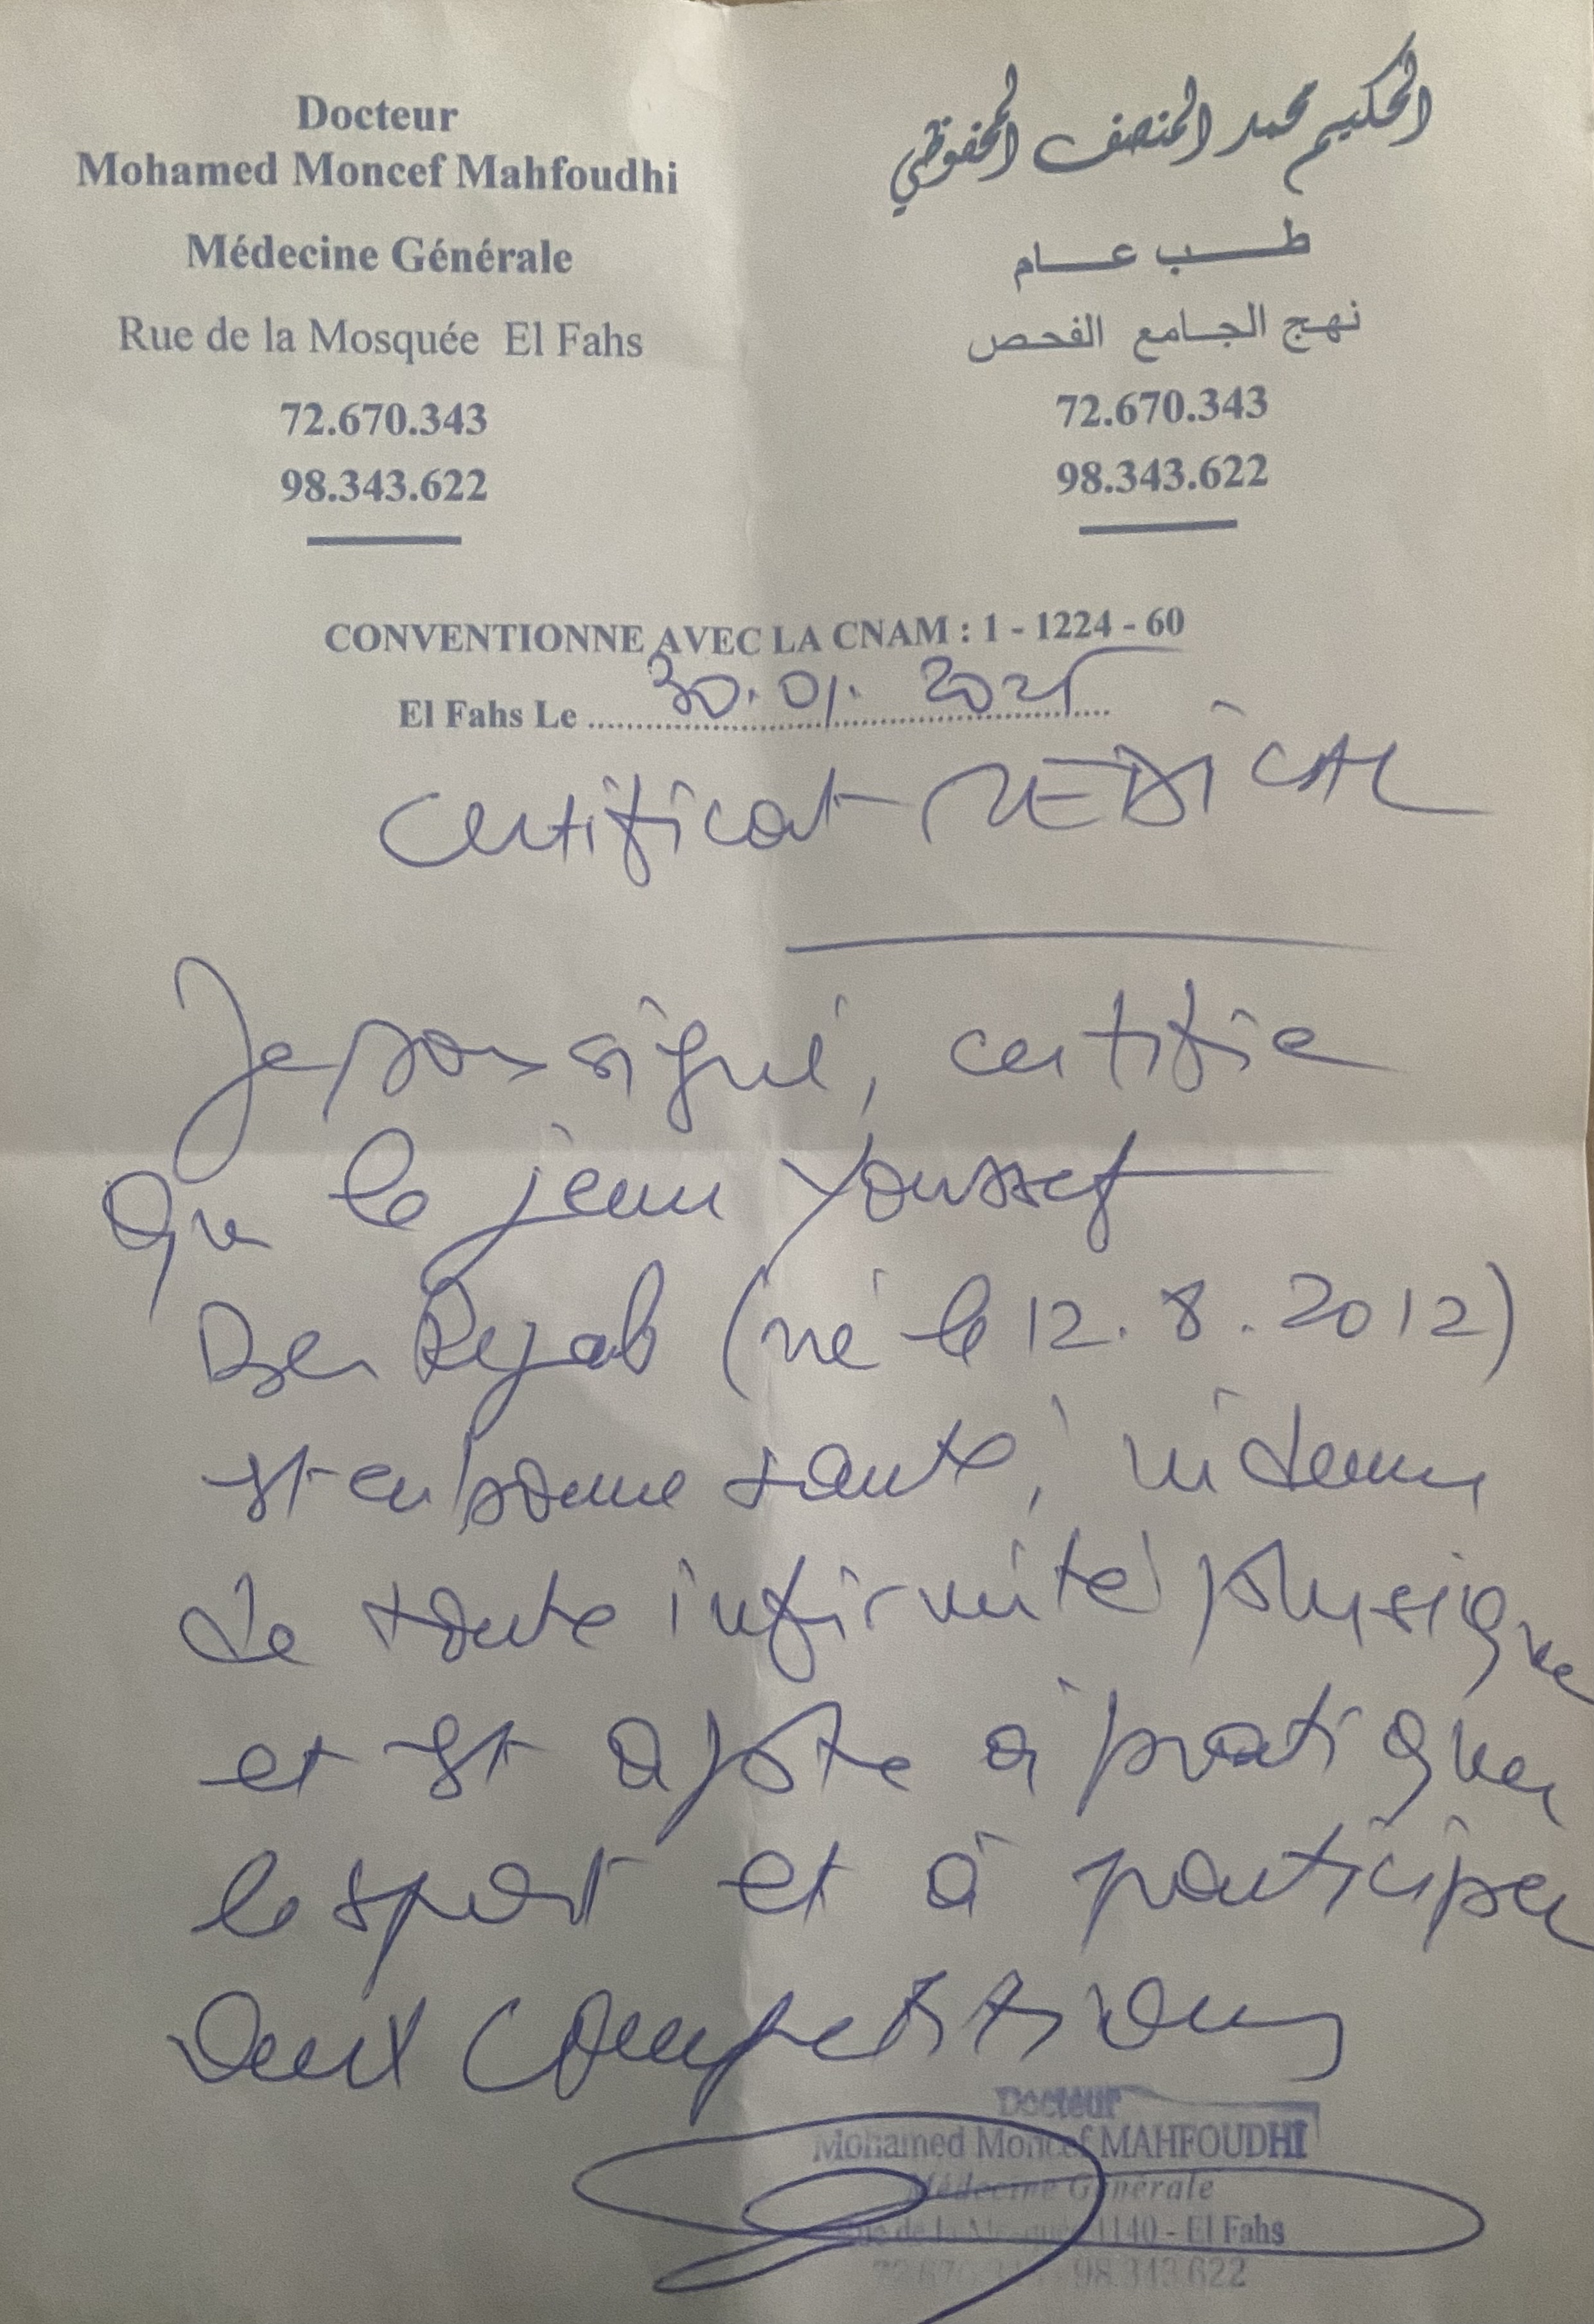 Docteur
Mohamed Moncef Mahfoudhi
Médecine Générale
Rue de la Mosquée El Fahs
72.670.343
98.343.622
الحكيم محمد المنصف المحفوظي
طب عام
نهج الجامع الفحص
72.670.343
98.343.622
CONVENTIONNE AVEC LA CNAM : 1 - 1224 - 60
El Fahs Le 30.01.2025
Certificat MEDICAL
Je soussigné, certifie
que le jeune Youssef
Ben Rejab (né le 12.8.2012)
est en bonne santé, indemne
de toute infirmité physique
et est apte à pratiquer
le sport et à participer
aux compétitions
Docteur
Mohamed Moncef MAHFOUDHI
Médecine Générale
Rue de la Mosquée 1140 - El Fahs
72.670.343 - 98.343.622